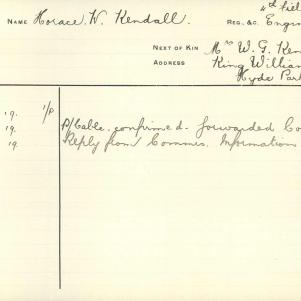 4th Fiel
NAME Horace. W. Kendall. REG. &C. Engin
NEXT OF KIN Mrs W. G. Ken
ADDRESS King William
Hyde Park
19. 1/P
19. P/Cable. confirmed. forwarded Co
19. Reply from Commis. Information